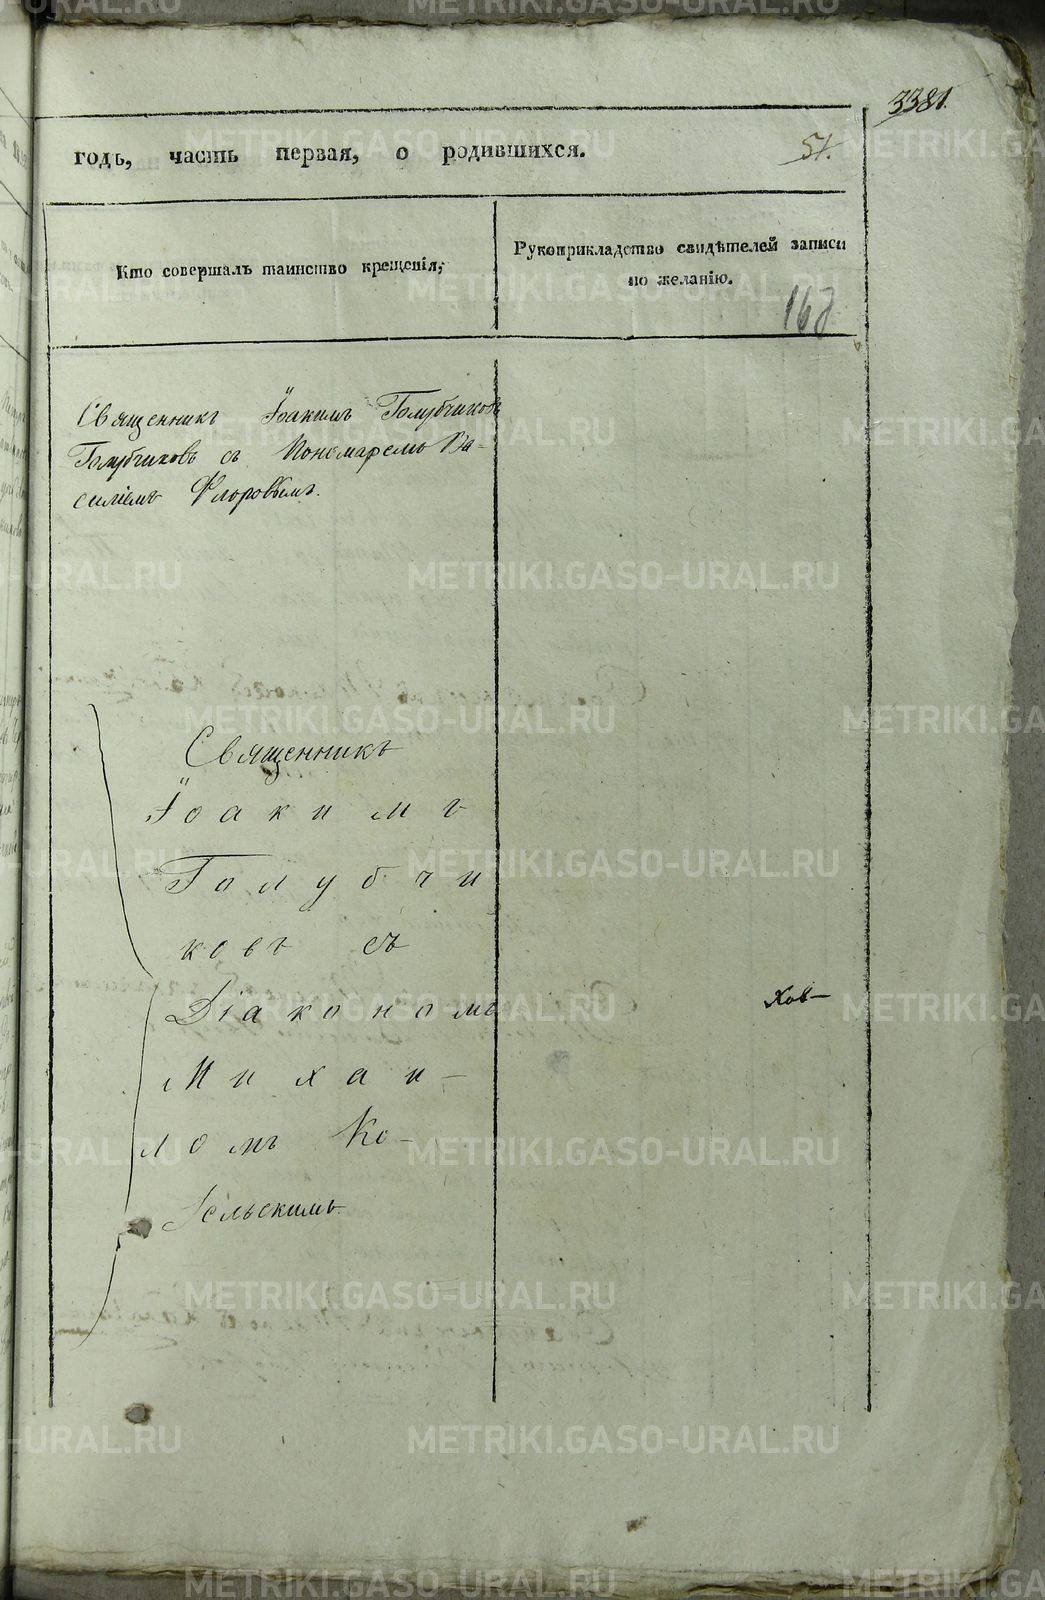 3381.
годъ, часть первая, о родившихся.
57.
Кто совершалъ таинство крещенія,
Рукоприкладство свидѣтелей записи
по желанію.
168
Священникъ Іоакимъ Голубчиковъ
Голубчиковъ съ Пономаремъ Ва-
силіемъ Флоровымъ.
Священникъ
Іоакимъ
Голубчи
ковъ съ
Діакономъ
Михаи-
ломъ Ко-
сельскимъ
Хов-
METRIKI.GASO-URAL.RU